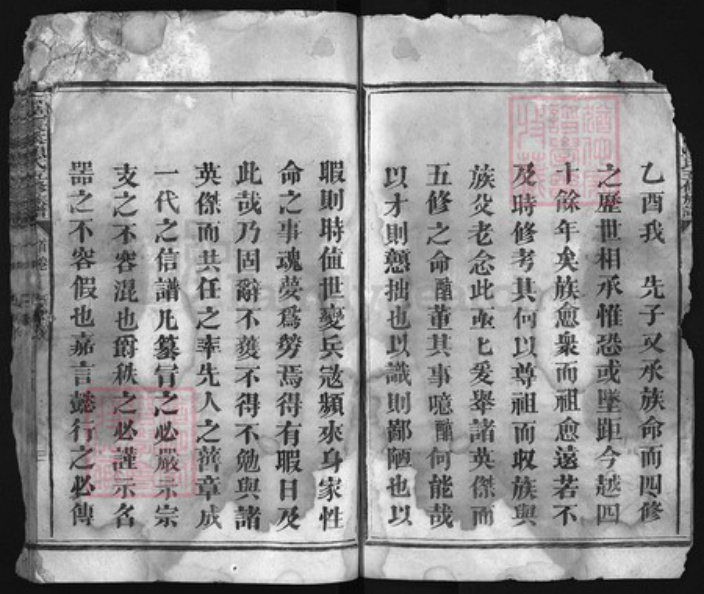 乙酉我　先子又承族命而四修
之歷世相承惟恐或墜距今越四
十餘年矣族愈衆而祖愈遠若不
及時修考其何以尊祖而收族與
族父老念此亟亟爰舉諸英傑而
五修之命釀董其事噫釀何能哉
以才則戇拙也以識則鄙陋也以
暇則時值世變兵寇頻來身家性
命之事魂夢爲勞焉得有暇日及
此哉乃固辭不獲不得不勉與諸
英傑而共任之率先人之舊章成
一代之信譜凡纂胥之必嚴示宗
支之不容混也爵秩之必謹示名
器之不容假也嘉言懿行之必傳